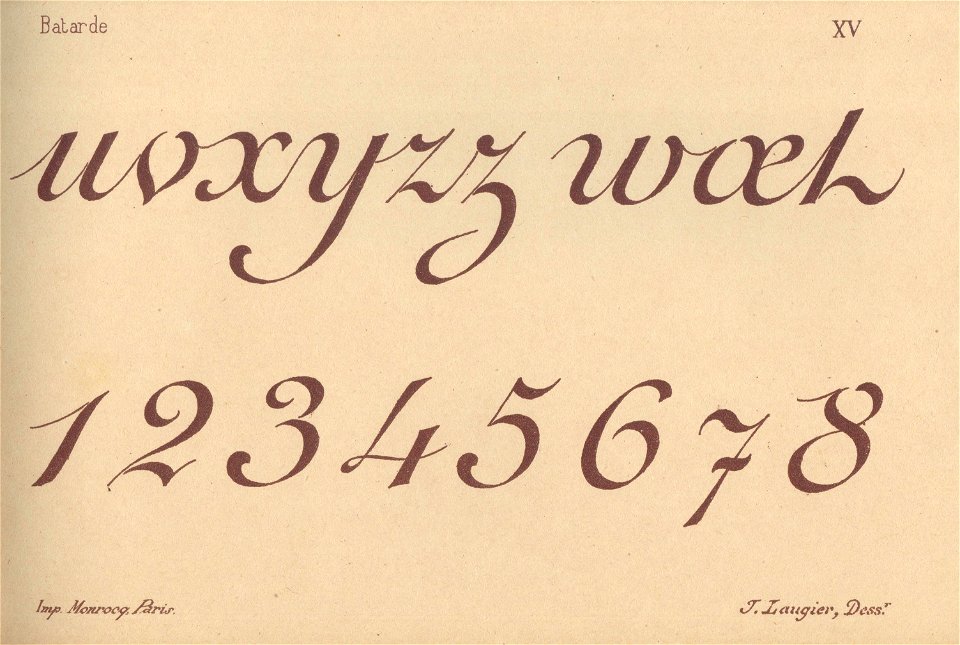 Batarde XV
uvxyzz wœt
12345678
Imp. Monrocq, Paris. J. Laugier, Dess.r